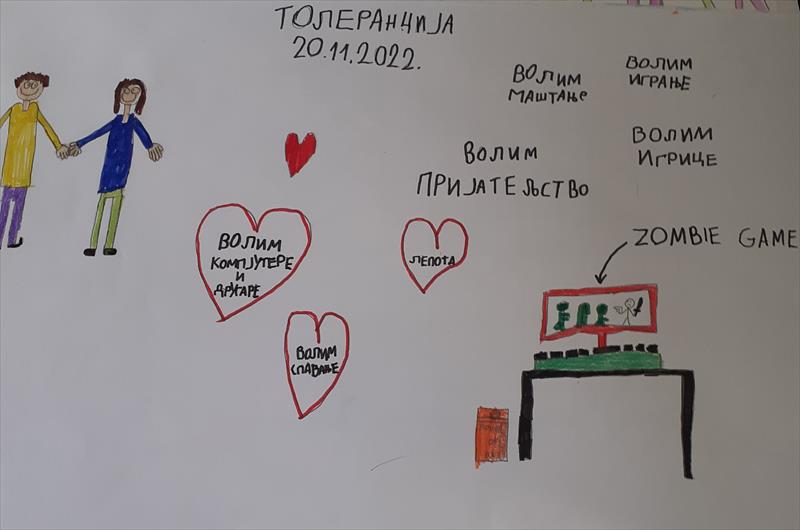 ТОЛЕРАНЦИЈА
20.11.2022.
ВОЛИМ
МАШТАЊЕ
ВОЛИМ
ИГРАЊЕ
ВОЛИМ
ПРИЈАТЕЉСТВО
ВОЛИМ
ИГРИЦЕ
ВОЛИМ
КОМПЈУТЕРЕ
И
ДРУГАРЕ
ЛЕПОТА
ZOMBIE GAME
ВОЛИМ
СПАВАЊЕ